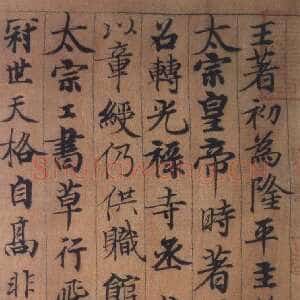 王著初為隆平主
太宗皇帝時著
召轉光祿寺丞
以章綬仍供職館
太宗工書草行飛
冠世天格自高非